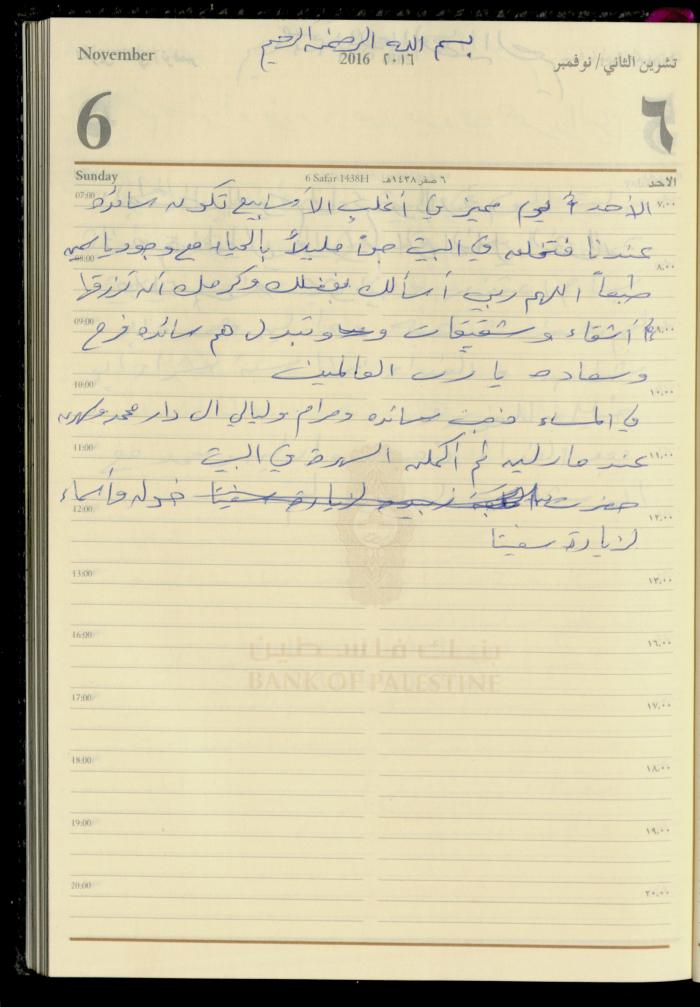 بسم الله الرحمن الرحيم
November 2016 ٢٠١٦ تشرين الثاني / نوفمبر
6 ٦
Sunday 6 Safar 1438H ٦ صفر ١٤٣٨هـ الاحد
07:00 الأحد يوم مميز في أغلب الأسابيع تكون سائدة ٧,٠٠
عندنا فتخلق في البيت جواً مليئاً بالحياه مع وجود ياسمين
08:00 ٨,٠٠
طبعاً اللهم ربي أسألك بفضلك وكرمك أن ترزقها
09:00 أشقاء وشقيقات وتبدل هم سائده فرح ٩,٠٠
وسعاده يا رب العالمين
10:00 ١٠,٠٠
في المساء سائده ومرام وليالي ال دار محمد
11:00 عند مارلين ثم أكملن السهرة في البيت ١١,٠٠
حضرت لزيارة سفيتا خوله وأسماء
12:00 ١٢,٠٠
لزيارة سفيتا
13:00 ١٣,٠٠
16:00 ١٦,٠٠
بنك فلسطين
BANK OF PALESTINE
17:00 ١٧,٠٠
18:00 ١٨,٠٠
19:00 ١٩,٠٠
20:00 ٢٠,٠٠